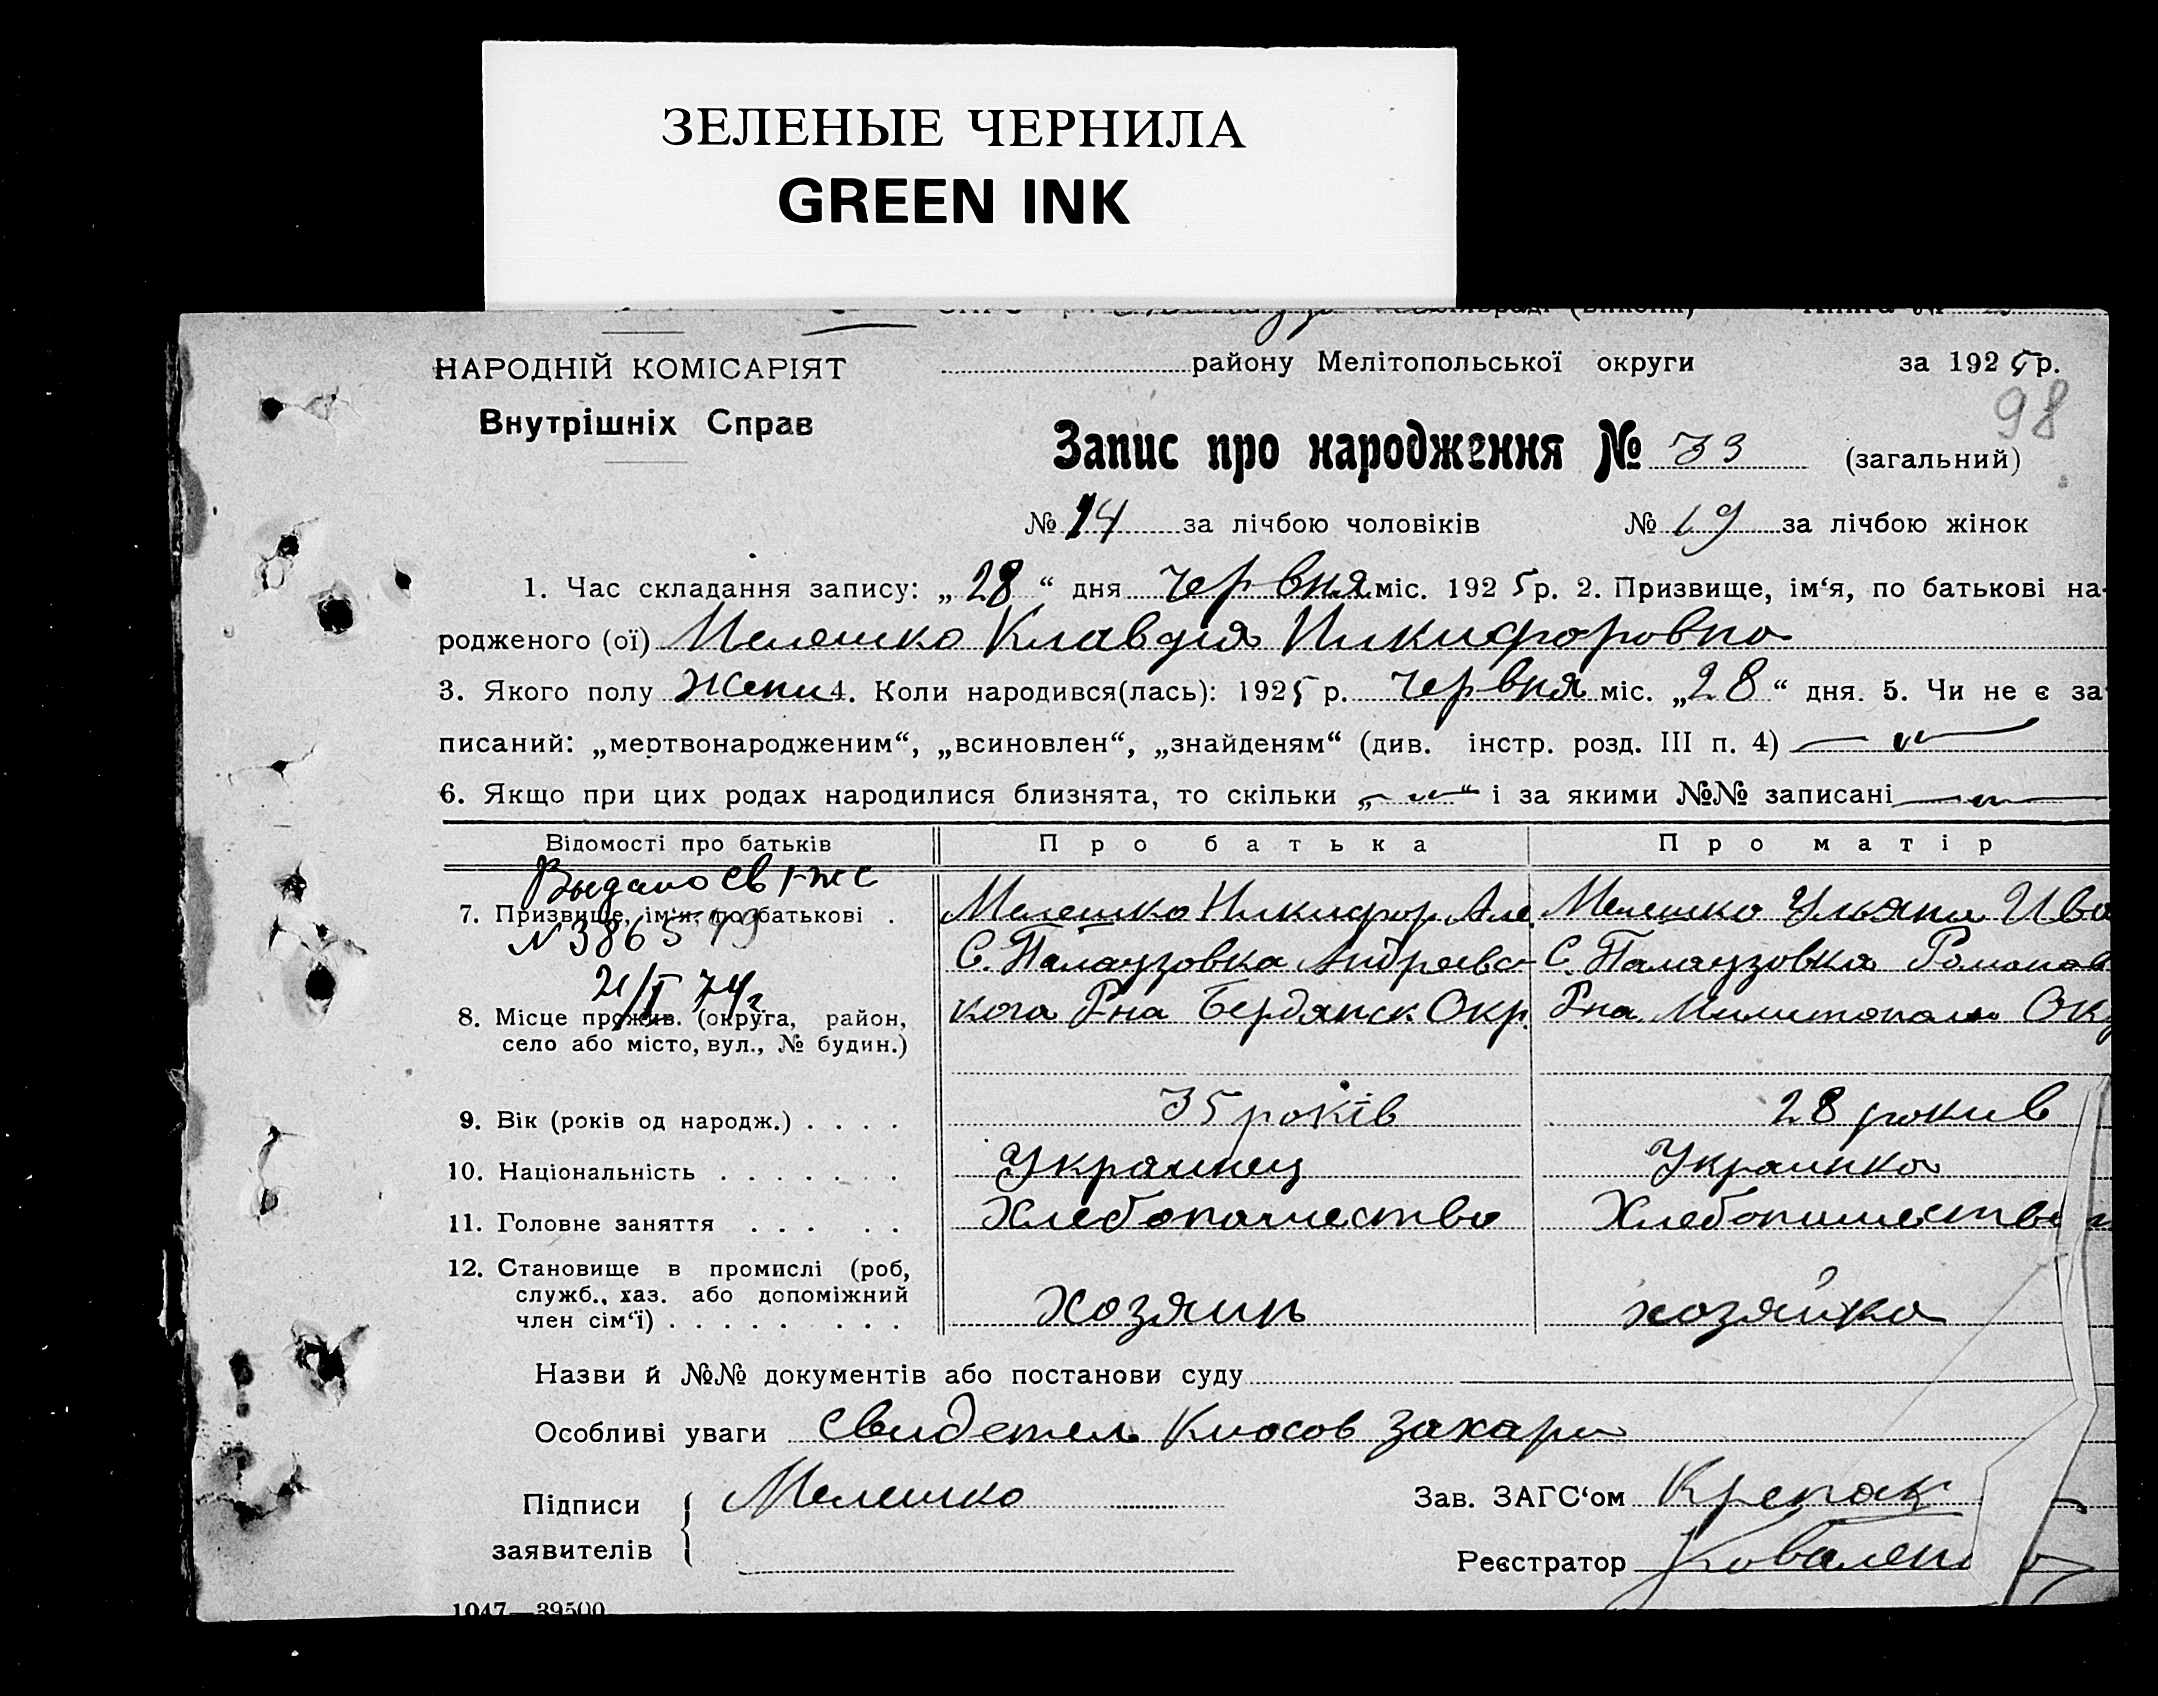 ЗЕЛЕНЫЕ ЧЕРНИЛА
GREEN INK
НАРОДНІЙ КОМІСАРІЯТ
Внутрішніх Справ
району Мелітопольської округи за 1925 р.
98
Запис про народження № 33 (загальний)
№ 14 за лічбою чоловіків № 19 за лічбою жінок
1. Час складання запису: „28“ дня червня міс. 1925 р. 2. Призвище, ім‘я, по батькові на-
родженого (ої) Мелешко Клавдія Никифоровна
3. Якого полу жени 4. Коли народився(лась): 1925 р. червня міс. „28“ дня. 5. Чи не є за-
писаний: „мертвонародженим“, „всиновлен“, „знайденям“ (див. інстр. розд. III п. 4)
6. Якщо при цих родах народилися близнята, то скільки „ “ і за якими №№ записані
Відомості про батьків Про батька Про матір
Выдано св
7. Призвище, ім‘я, по батькові . Мелешко Никифор Але Мелешко Ульяна Ива
N 386579
С. Палаузовка Андреевс- С. Палаузовка Романов
21/I 74г
8. Місце прожив. (округа, район, кога Р-на Бердянск Окр. Р-на Милитополь Окр
село або місто, вул., № будин.)
9. Вік (років од народж.) . . . . 35 років 28 рокив
10. Національність . . . . . . . Украинец Украинка
11. Головне заняття . . . . . Хлебопашество Хлебопашество
12. Становище в промислі (роб,
служб., хаз. або допоміжний
член сім‘ї) . . . . . . . . хозяин хозяйка
Назви й №№ документів або постанови суду
Особливі уваги свидетель Киосов Захари
Підписи Мелешко Зав. ЗАГС‘ом Крепак
заявителів Реєстратор Ковален
1047—39500